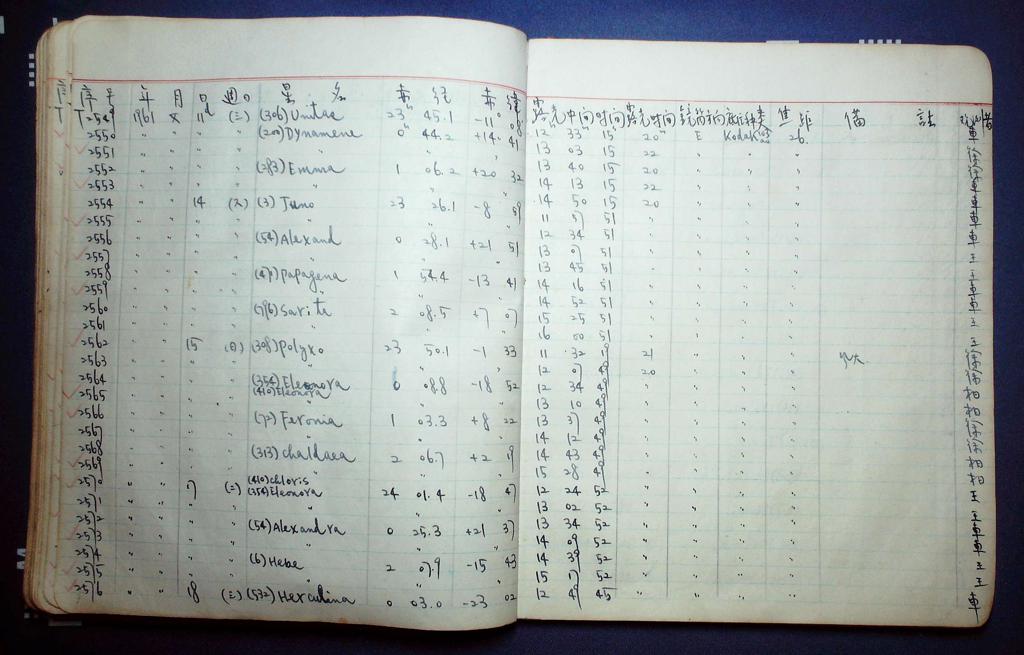 序号 年 月 日 週日 星名 赤经 赤纬 露光中间时间 露光时间 镜筒 底片种类 焦距 備 註
T2549 1961 × 11d (三) (306) Unitas 23h 45.1 -11° 08 12 33 15 20m E Kodak 26.
2550 " " " " (200) Dynamene 0h 44.2 +14 41 13 03 15 22 " " "
2551 " " " " " 13 40 15 20 " " "
2552 " " " " (283) Emma 1 06.2 +20 32 14 13 15 22 " " "
2553 " " " " " 14 50 15 20 " " "
2554 " " 14 (六) (3) Juno 23 26.1 -8 59 11 57 51 " " " "
2555 " " " " " 12 34 51 " " " "
2556 " " " " (54) Alexand 0 28.1 +21 51 13 07 51 " " " "
2557 " " " " " 13 45 51 " " " "
2558 " " " " (471) Papagena 1 54.4 -13 41 14 16 51 " " " "
2559 " " " " " 14 52 51 " " " "
2560 " " " " (796) Sarita 2 08.5 +7 07 15 25 51 " " " "
2561 " " " " " 16 00 51 " " " "
2562 " " 15 (日) (308) Polyxo 23 50.1 -1 33 11 32 49 21 " " "
2563 " " " " " 12 07 49 20 " " "
2564 " " " " (354) Eleonora 0 08.8 -18 52 12 34 49 " " " "
2565 " " " " (410) Eleonora 13 10 49 " " " "
2566 " " " " (72) Feronia 1 03.3 +8 22 13 37 49 " " " "
2567 " " " " " 14 12 49 " " " "
2568 " " " " (313) Chaldaea 2 06.7 +2 19 14 43 49 " " " "
2569 " " " " " 15 28 49 " " " "
2570 " " 17 (二) (410) Chloris (354) Eleonora 24 01.4 -18 47 12 24 52 " " " "
2571 " " " " " 13 02 52 " " " "
2572 " " " " (54) Alexandra 0 25.3 +21 37 13 34 52 " " " "
2573 " " " " " 14 09 52 " " " "
2574 " " " " (6) Hebe 2 07.9 -15 43 14 39 52 " " " "
2575 " " " " " 15 17 52 " " " "
2576 " " 18 (三) (532) Herculina 0 03.0 -23 02 12 47 45 " " " "